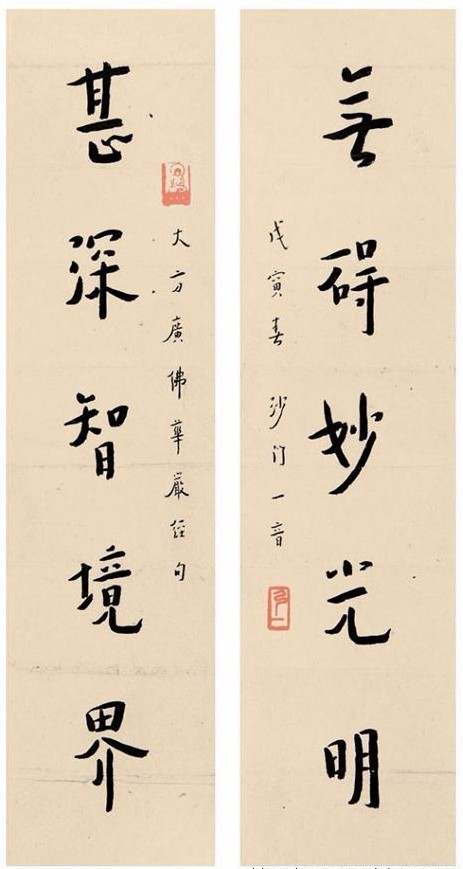 無碍妙光明
戊寅春 沙门一音
大方廣佛華嚴經句
甚深智境界